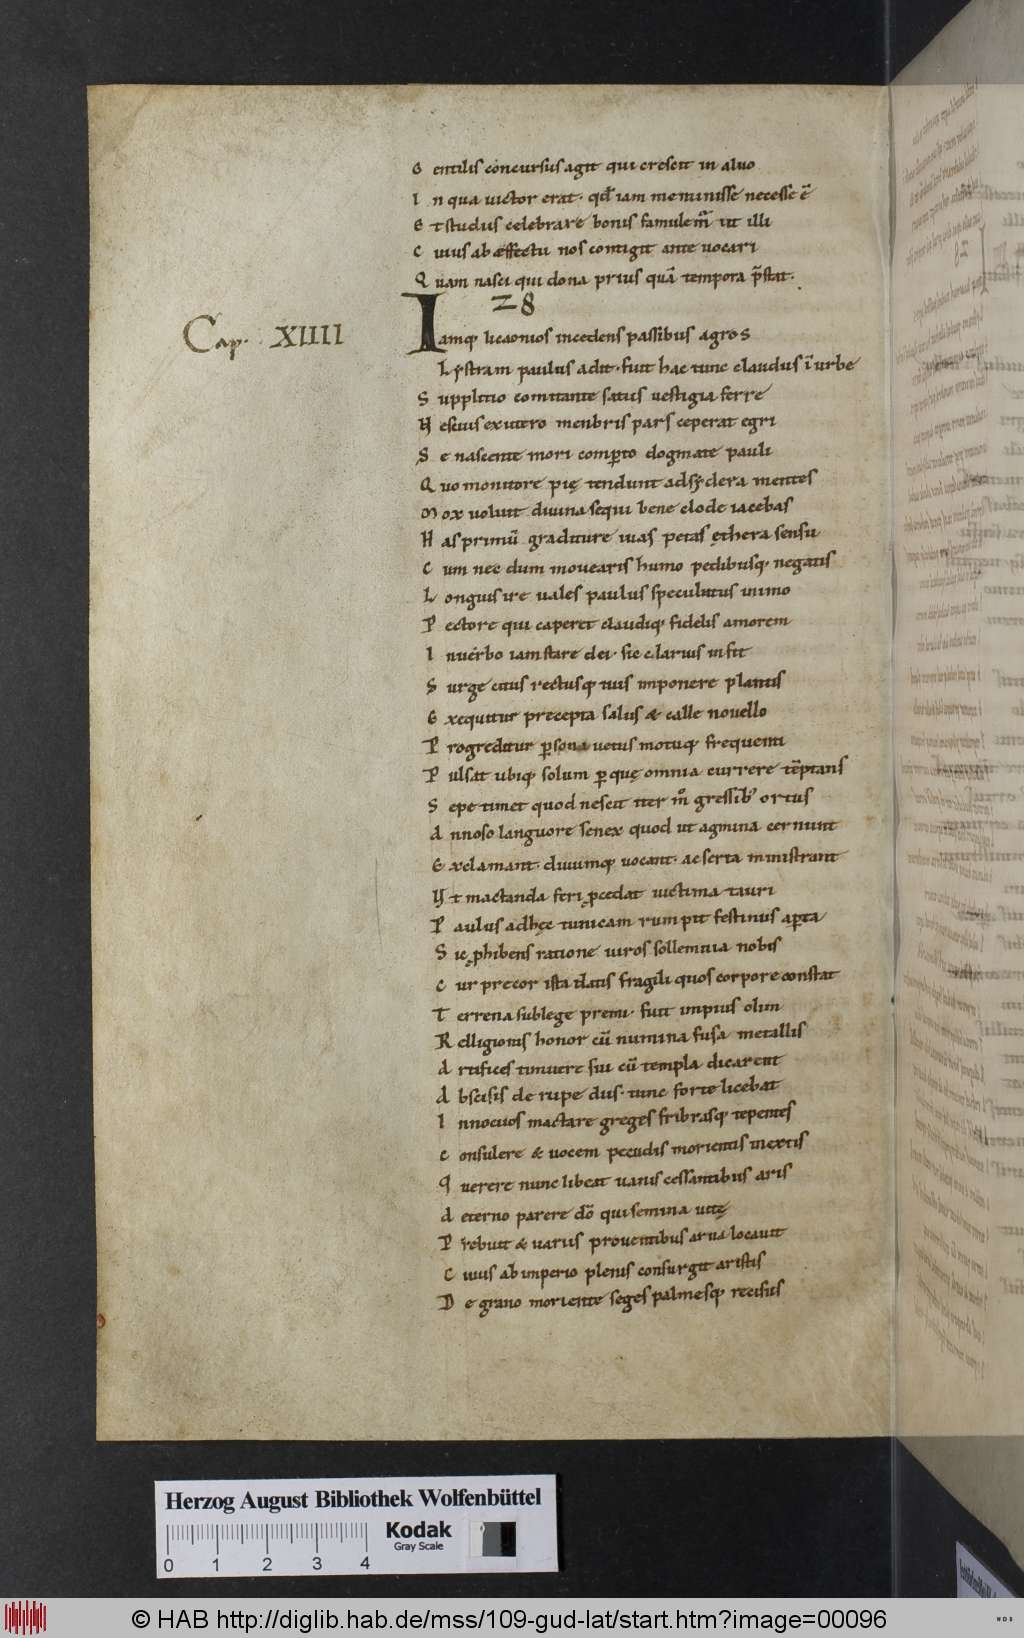 G entilis concursus agit qui crescit in aluo
I n qua uictor erat. qđ iam meminisse necesse ē
E t studiis celebrare bonis famulem̃ ut illi
C uius ab æffectu nos contigit ante uocari
Q uam nasci qui dona prius quā tempora p̄stat.
28
Cap. XIIII
Iamq; licaonios incedens passibus agros
Lystram paulus adit. fuit hac tunc claudus ī urbe
S upplitio comitante satus uestigia ferre
N escius ex utero menbris pars ceperat egri
S e nascente mori comꝑto dogmate pauli
Q uo monitore pię tendunt ad sydera mentes
M ox uoluit diuina sequi bene clode iacebas
H as primū graditure uias petas ęthera sensu
C um nec dum mouearis humo pedibusq; negatis
L ongius ire uales paulus speculatus in imo
P ectore qui caperet claudiq; fidelis amorem
I n uerbo iam stare dei. sic clarius infit
S urge citus rectusq; tuis imponere plantis
E xequitur precepta salus & calle nouello
P rogreditur ꝑsona uetus motuq; frequenti
P ulsat ubiq; solum ꝑ quę omnia currere tēptans
S epe timet quod nescit iter m̊ gressib; ortus
A nnoso languore senex quod ut agmina cernunt
E xclamant. diuumq; uocant. ac serta ministrant
U t mactanda feri ꝓcedat uictima tauri
P aulus ad hęc tunicam rumpit festinus aꝑta
S ic ꝓhibens ratione uiros sollemnia nobis
C ur precor ista datis fragili quos corpore constat
T errena sub lege premi. fuit impius olim
R elligionis honor cū numina fusa metallis
A rtifices timuere sui cū templa dicarent
A bscisis de rupe diis. tunc forte licebat
I nnocuos mactare greges fibrasq; tepentes
C onsulere & uocem pecudis morientis in extis
Q uerere nunc libeat uanis cessantibus aris
A eterno parere dō qui semina uitę
P rebuit & uariis prouentibus arua locauit
C uius ab imperio plenis consurgit aristis
D e grano moriente seges palmesq; recisus
Herzog August Bibliothek Wolfenbüttel
Kodak
Gray Scale
0 1 2 3 4
© HAB http://diglib.hab.de/mss/109-gud-lat/start.htm?image=00096